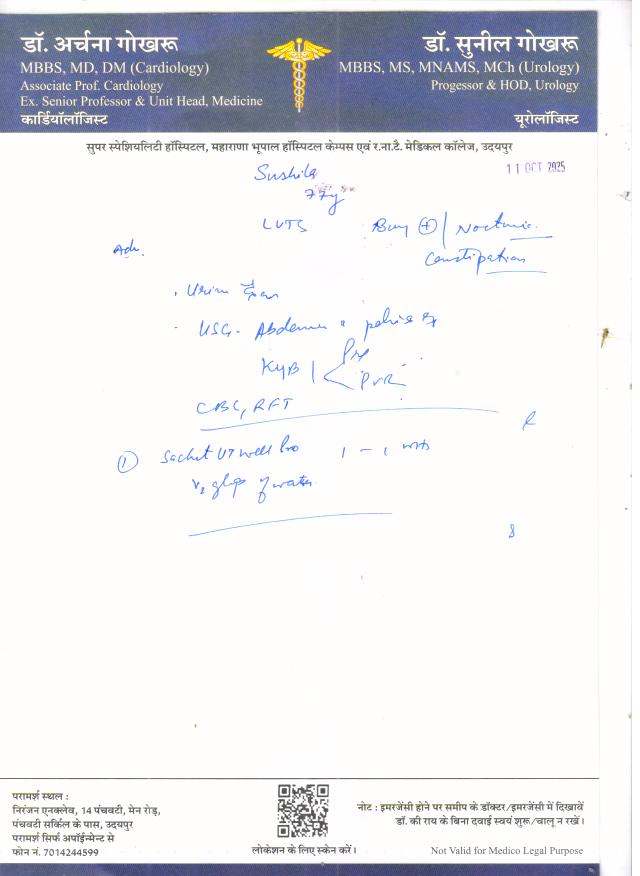 डॉ. अर्चना गोखरू
MBBS, MD, DM (Cardiology)
Associate Prof. Cardiology
Ex. Senior Professor & Unit Head, Medicine
कार्डियॉलॉजिस्ट
डॉ. सुनील गोखरू
MBBS, MS, MNAMS, MCh (Urology)
Progessor & HOD, Urology
यूरोलॉजिस्ट
सुपर स्पेशियलिटी हॉस्पिटल, महाराणा भूपाल हॉस्पिटल केम्पस एवं र.ना.टै. मेडिकल कॉलेज, उदयपुर
11 OCT 2025
Sushila
77y
LUTS
Adv.
Constipation
Urine
USG. Abdomen
KUB
PVR
CBC, RFT
① Sachet UT well Pro 1 - 1 with
of water
परामर्श स्थल :
निरंजन एनक्लेव, 14 पंचवटी, मेन रोड़,
पंचवटी सर्किल के पास, उदयपुर
परामर्श सिर्फ अपॉईन्मेन्ट से
फोन नं. 7014244599
लोकेशन के लिए स्केन करें।
नोट : इमरजेंसी होने पर समीप के डॉक्टर/इमरजेंसी में दिखावें
डॉ. की राय के बिना दवाई स्वयं शुरू/चालू न रखें।
Not Valid for Medico Legal Purpose